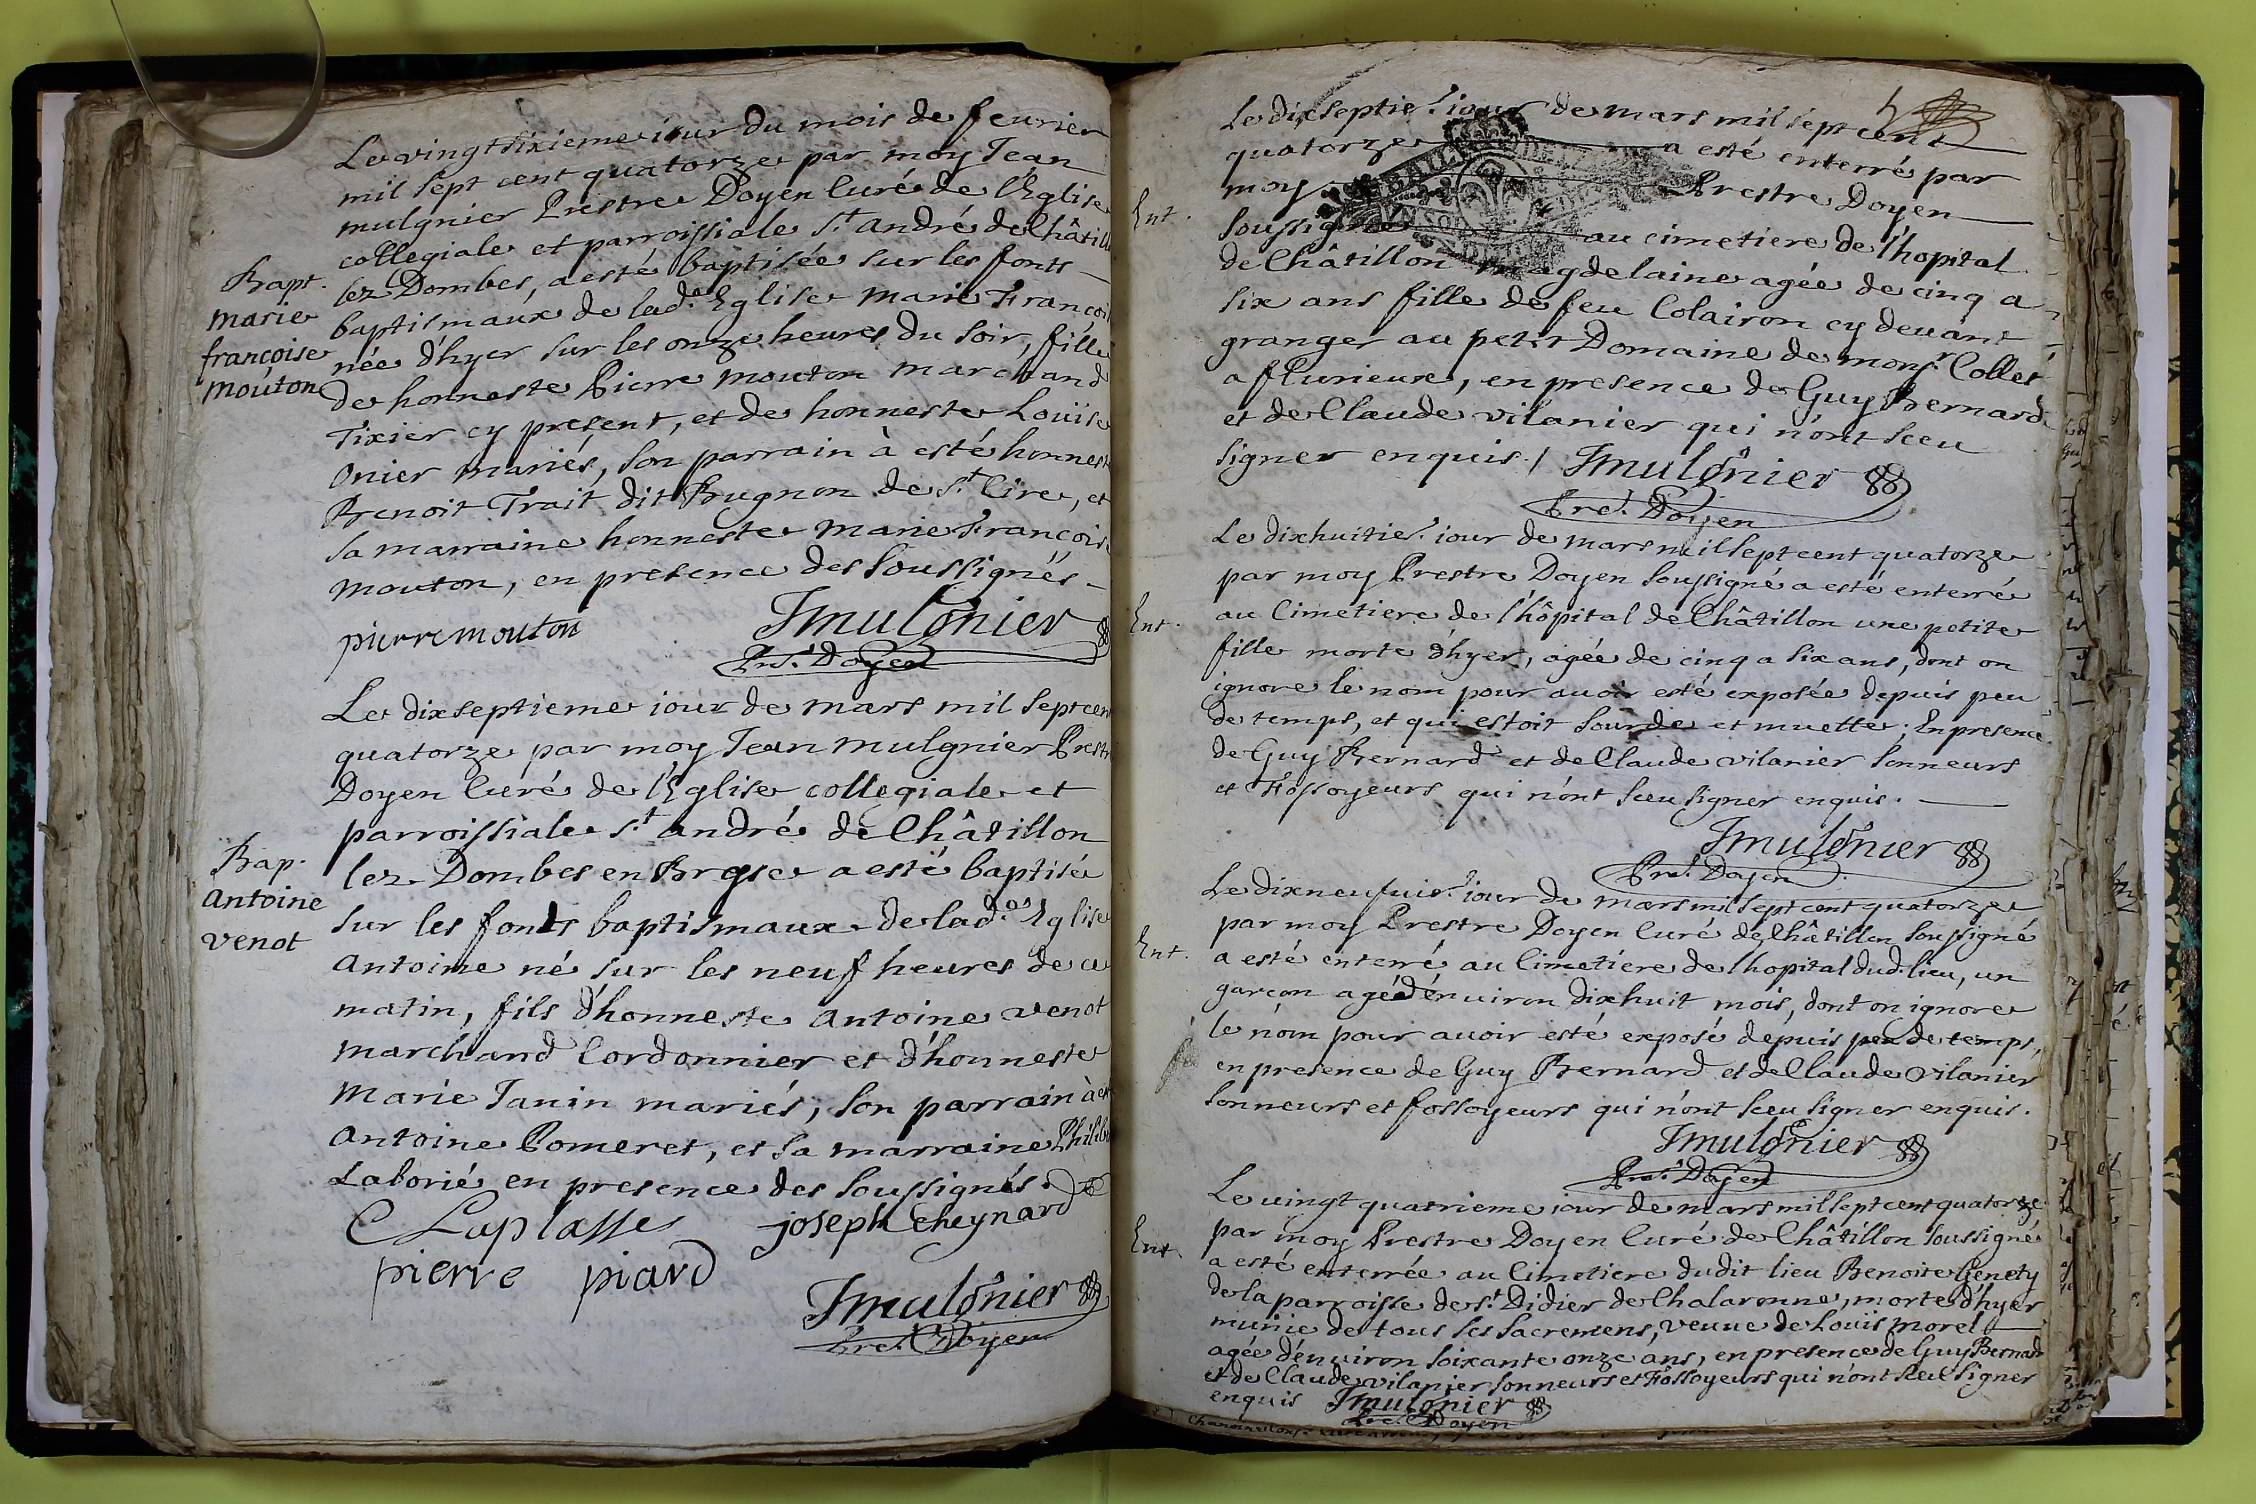 Le vingt sixieme iour du mois de feurier
mil sept cent quatorze par moy Jean
mulgnier Prestre Doyen Curé de l'Eglise
collegiale et parroissiale St. andré de Châtill
lez Dombes, a esté baptisée sur les fonts
Bapt.
marie
françoise
mouton
baptismaux de lad.e Eglise Marie Françoi
née d'hyer sur les onze heures du soir, fille
de honneste Pierre mouton marchand
Tixier cy present, et de honneste Loüise
Onier mariés, son parrain à esté honnest
Benoit Trait dit Bugnon de St. Cire, et
sa marraine honneste Marie Françoise
mouton, en presence des soussignés
pierre mouton JMulgnier
Pre. Doyen
Le dixseptieme iour de mars mil sept cen
quatorze par moy Jean mulgnier Prestr
Doyen Curé de l'Eglise collegiale et
parroissiale St. andré de Châtillon
lez Dombes en Bresse a esté baptisé
Bap.
antoine
venot
sur les fonts baptismaux de lad.e Eglise
antoine né sur les neuf heures de ce
matin, fils d'honneste antoine venot
marchand Cordonnier et d'honneste
Marie Janin mariés, son parrain à
antoine Pomeret, et sa marraine Phil
Laborié en presence des soussignés.
C Laplasse joseph Cheynard
pierre piard
JMulgnier
Pre. Doyen
Le dixseptie. iour de mars mil sept cent
quatorze a esté enterré par
moy Prestre Doyen
Ent.
soussigné au cimetiere de l'hopital
de Châtillon magdelaine agée de cinq a
six ans fille de feu Colairon cy deuant
granger au petit Domaine de monsr. Collet
a fleurieux, en presence de Guy Bernard
et de Claude vilanier qui n'ont sceu
signer enquis. / JMulgnier
Pre. Doyen
Le dixhuitie. iour de mars mil sept cent quatorze
par moy Prestre Doyen soussigné a esté enterré
Ent.
au Cimetiere de l'hôpital de Châtillon une petite
fille morte d'hyer, agée de cinq a six ans, dont on
ignore le nom pour auoir esté exposée depuis peu
de temps, et qui estoit sourde et muette; En presence
de Guy Bernard et de Claude vilanier sonneurs
et Fossoyeurs qui n'ont sceu signer enquis.
JMulgnier
Pre. Doyen
Le dixneufuie. iour de mars mil sept cent quatorze
par moy Prestre Doyen Curé de Châtillon soussigné
Ent.
a esté enterré au Cimetiere de l'hopital dud. lieu, un
garcon agé d'enuiron dixhuit mois, dont on ignore
le nom pour auoir esté exposé depuis peu de temps,
en presence de Guy Bernard et de Claude vilanier
sonneurs et fossoyeurs qui n'ont sceu signer enquis.
JMulgnier
Pre. Doyen
Le vingt quatrieme iour de mars mil sept cent quatorze
Ent.
par moy Prestre Doyen Curé de Châtillon soussigné
a esté enterrée au Cimetiere dudit lieu Benoite Genety
de la parroisse de St. Didier de Chalaronne, morte d'hyer
munie de tous ses sacremens, veuue de Loüis morel
agée d'enuiron soixante onze ans, en presence de Guy Bernard
et de Claude vilanier sonneurs et Fossoyeurs qui n'ont sceu signer
enquis JMulgnier
Pre. Doyen